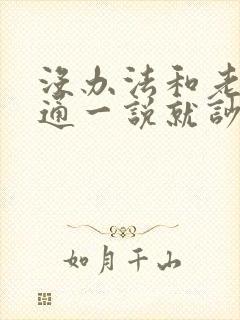 沒办法和老
通一説就訃
如月千山